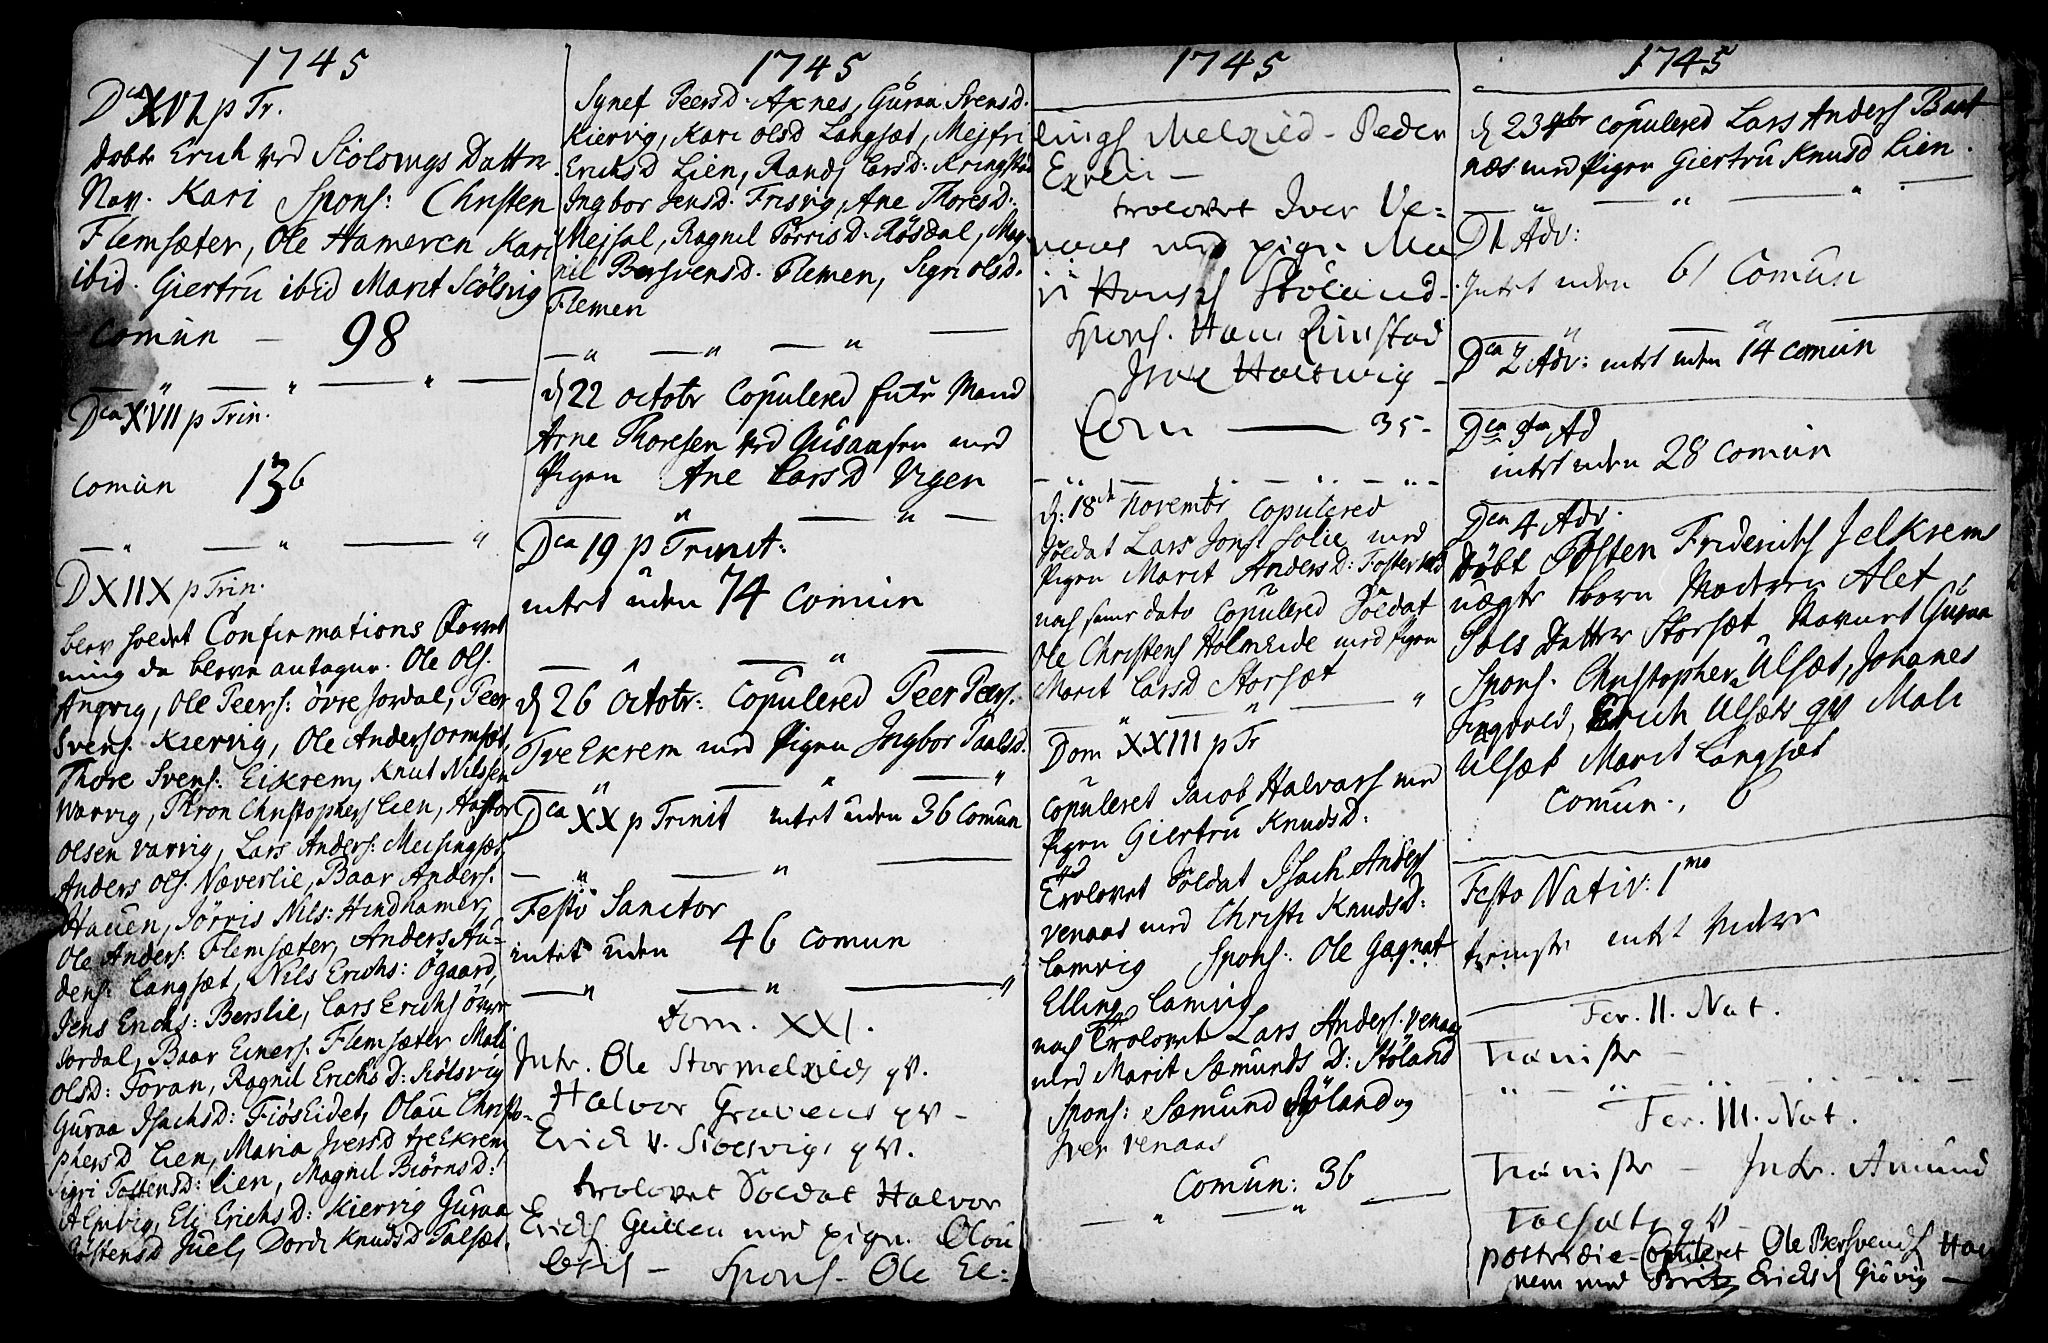 1745
Dca XVI p Tr.
Dobt Erich ved Stolsvigs Datter
Nav. Kari Spons: Christen
Flemsæter, Ole Hameren Kari
ibid. Giertru ibid Marit Stölsvig
comun - 98
Dca XVII p Trin.
comun 136
D XIIX p Trin.
blev holdet Confirmations
ning da bleve antagne. Ole Ols.
Angvig, Ole Peers: övre Jordal, Peer
Svens. Kiervig, Ole Anders Ormset,
Thore Svens: Eikrem, Knut Nilssen
Warvig, Thron Christophers Lien, Hastor
Olsen Varvig, Lars Anders: Meisingset
Anders Ols. Næverlie, Baar Anders.
Hauen, Jörris Nils: Hindhamer,
Ole Anders: Flemsæter, Anders Au=
dens: Langsæt, Nils Erichs: Ögaard,
Jens Erichs: Berslie, Lars Erichs övre
Jordal, Baar Einers. Flemsæter Mali
Olsd: Torvan, Ragnil Erichs D: Stölsvig
Guraa Isachsd: Fiöseidet, Olau Christo-
phersd Lien, Maria Iversd Eikrem
Sigri Tostensd: Lien, Magnil Biörnsd:
Almvig, Eli Erichs D: Kiervig Guraa
Jostensd Juel, Dorde Knudsd Talset.
1745
Synef Peersd. Axnes, Guraa Svensd.
Kiervig, Kari Olsd Langsæt, Mejfri
Erichsd Lien, Rand Larsd: Kringstad
Ingbor Jensd. Frisvig, Ane Thoresd:
Mejsal, Ragnil Jörris D. Rösdal, Mag
nil Bersvensd. Flemen, Sigri Olsd.
Flemen
d 22 Octobr Copulered Enke Mand
Arne Thoresen ved med
Pigen Ane Lars D Vigen
Dca 19 p Trinit:
intet uden 74 comun
d 26 Octobr: Copulered Peer Peers.
Tveekrem med Pigen Ingbor Paalsd.
Dca XX p Trinit intet uden 36 comun
Festo Sanctor
intet uden 46 comun
Dom. XXI.
Intr. Ole Stormelxild qv.
Halvor Gravens qv -
Erich v. Stolsvig, qv.
trolovet Soldat Halvor
Erichs Gullen med pige. Olau
Spons - Ole El:
1745
lings Melxild - Peder
Exelli -
trolovet Iver Ve=
naas med pige Ma
ri Hansd Stöland-
Spons. Hans Rimstad
Iver Holtwig -
Com 35-
d: 18de Novembr Copulered
Soldat Lars Jons: Solie med
Pigen Marit Anders D:
nok same dato Copulered Soldat
Ole Christens Holmeide med Pigen
Marit Larsd Storsæt
Dom XXIII p Tr
Copuleret Jacob Halvars med
Pigen Giertru Knudsd:
Trolovet Soldat Isach Anders
Venaas med Christi Knudsd:
Lamvig Spons: Ole Gagnat
Elling Lamvig
nok Trolovet Lars Anders. Venaas
med Marit Sæmunds D: Stöland
Spons: Sæmund Stöland og
Iver Venaas
Comun: 36
1745
d 23 9br copulered Lars Anders Baat
næs med Pigen Giertru Knusd Lien.
D 1 Adv:
Intet uden 61 Comun
Dca 2 Adv: intet uden 14 comun
Dca 3 Ad
intet uden 28 comun
Dca 4 Adv.
Döbt Tosten Friderichs Jelkrems
uægte barn Moderen Alet
Pols Datter Storsæt Navnet Guraa
Spons. Christopher Ulsæt, Johanes
Tingvold, Erich Ulsæts qv Mali
Ulset Marit Langsæt
Comun., 6
Festo Nativ: 1mo
tieniste intet videre
Fer. II. Nat.
Tieniste -
Fer. III. Nat.
Tieniste - Intr. Amund
Talsæts qv -
postridie - Copuleret Ole Bersvends Ha
nem med Brit Erichsd Giövig -